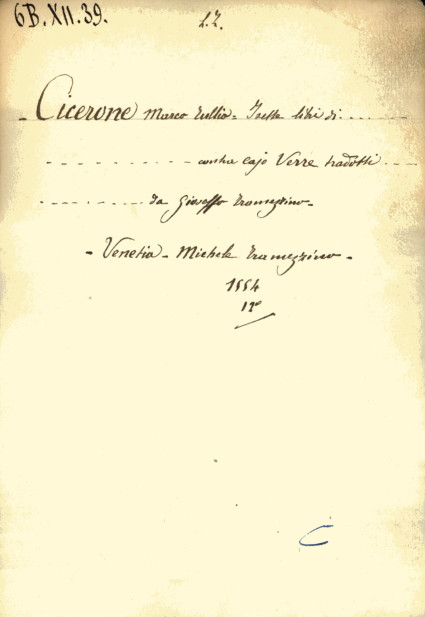 6B.XII.39.
L.Z.
Cicerone Marco Tullio = Isette libri di
contra cajo Verre tradotti
da Gioseffo Tramezzino -
- Venetia - Michele Tramezzino -
1554
12°
C